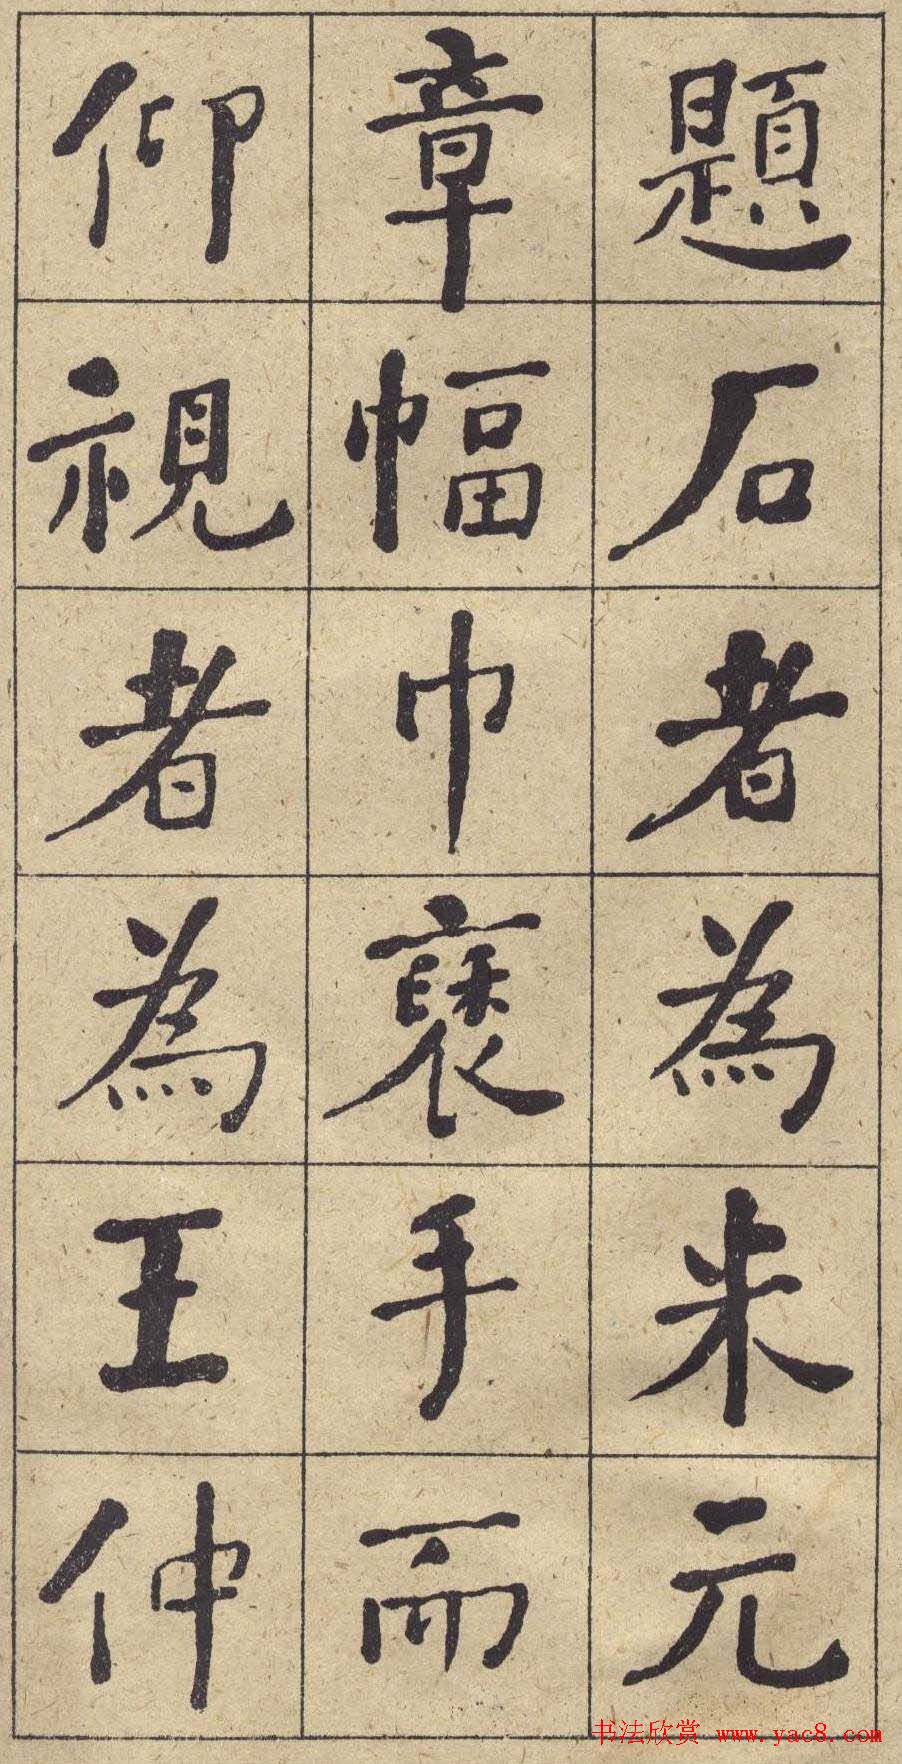 題石者為米元
章幅巾褎手而
仰視者為王仲
书法欣赏 www.yac8.com